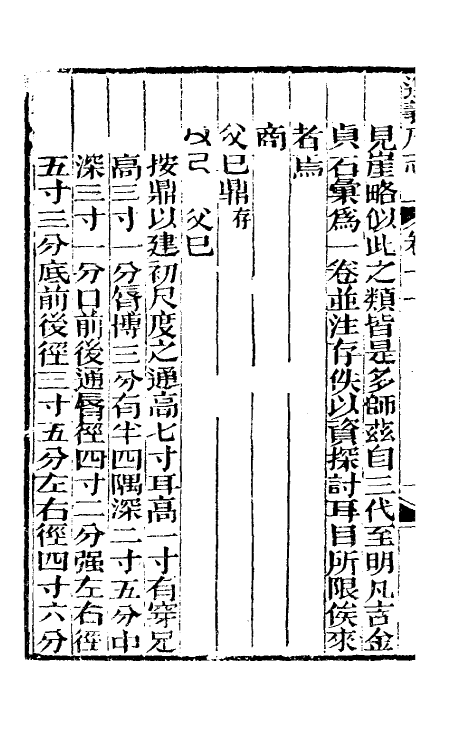 遵義府志 卷十一
見崖略似此之類皆是多師茲自三代至明凡吉金
貞石彙爲一卷並注存佚以資探討耳目所限俟來
者焉
商
父巳鼎存
父巳
按鼎以建初尺度之通高七寸耳高一寸有穿足
高三寸一分唇博三分有半四隅深二寸五分中
深三寸一分口前後通唇徑四寸二分强左右徑
五寸三分底前後徑三寸五分左右徑四寸六分